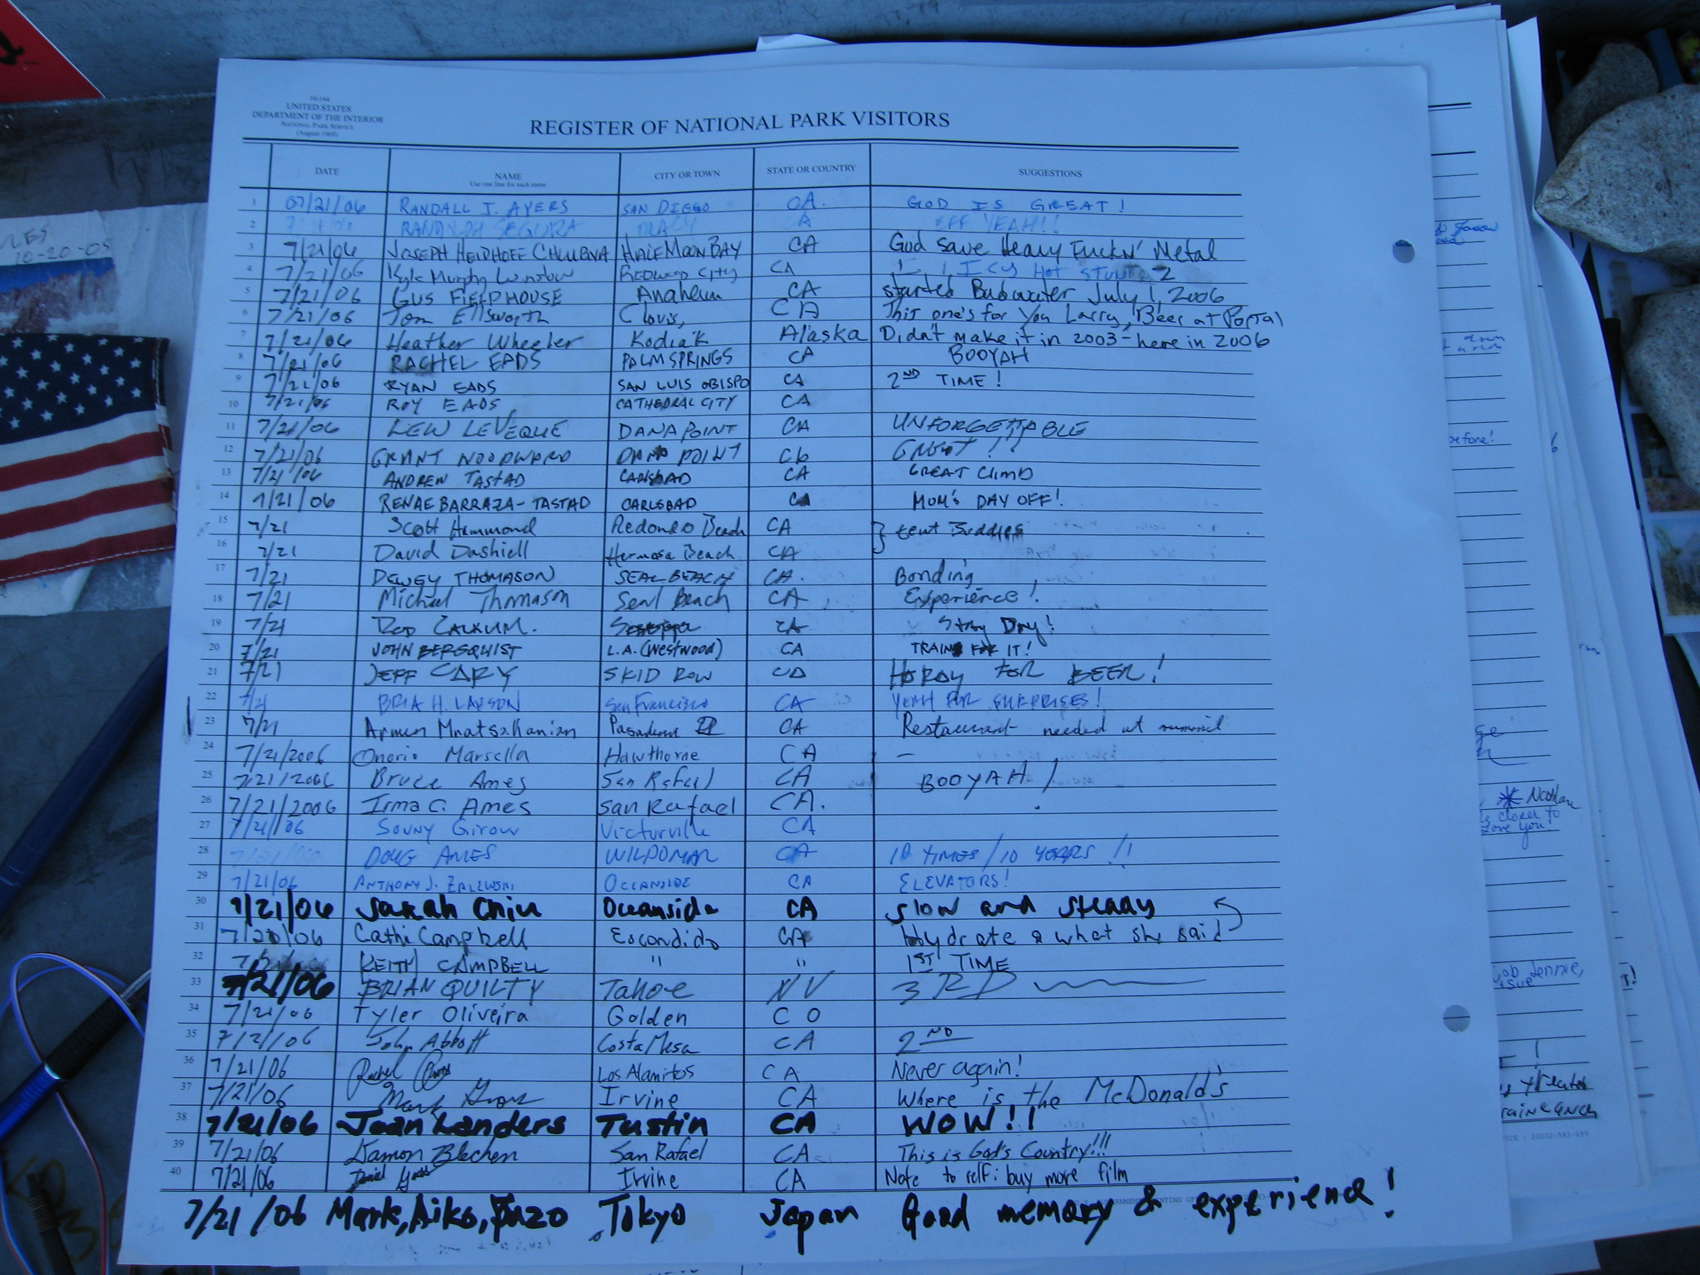 10-20-05
UNITED STATES
DEPARTMENT OF THE INTERIOR
National Park Service
REGISTER OF NATIONAL PARK VISITORS
DATE NAME CITY OR TOWN STATE OR COUNTRY SUGGESTIONS
Use one line for each name
1 07/21/06 RANDALL J. AYERS SAN DIEGO CA. GOD IS GREAT!
2 SEGURA EFF YEAH!!
3 7/21/06 JOSEPH HALF MOON BAY CA God Save Heavy Fuckn' Metal
4 7/21/06 Kyle Murphy REDWOOD CITY CA ICY HOT
5 7/21/06 GUS FIELDHOUSE Anaheim CA started July 1, 2006
6 7/21/06 Tom Ellsworth Clovis, CA This one's for You Larry, Beer at Portal
7 7/21/06 Heather Wheeler Kodiak Alaska Didn't make it in 2003 - here in 2006
8 7/21/06 RACHEL EADS PALM SPRINGS CA BOOYAH
9 7/21/06 RYAN EADS SAN LUIS OBISPO CA 2ND TIME!
10 7/21/06 ROY EADS CATHEDRAL CITY CA
11 7/21/06 LEW LEVEQUE DANA POINT CA UNFORGETTABLE
12 7/21/06 GRANT WOODWARD DANA POINT CA GREAT!!
13 7/21/06 ANDREW TASTAD CARLSBAD CA GREAT CLIMB
14 7/21/06 RENAE BARRAZA-TASTAD CARLSBAD CA MOM'S DAY OFF!
15 7/21 Scott Hammond Redondo Beach CA } tent Buddies
16 7/21 David Dashiell Hermosa Beach CA
17 7/21 DEWEY THOMASON SEAL BEACH CA. Bonding
18 7/21 Michael Thomason Seal Beach CA Experience!
19 7/21 ROD CA Stay Dry!
20 7/21 JOHN BERGQUIST L.A. (Westwood) CA TRAIN FOR IT!
21 7/21 JEFF CARY SKID ROW CA FOR BEER!
22 7/21 H. LARSON San Francisco CA YEAH FOR SURPRISES!
23 7/21 Armen Mnatsakanian Pasadena CA Restaurant needed at summit
24 7/21/2006 Onorio Marsella Hawthorne CA –
25 7/21/2006 Bruce Ames San Rafael CA BOOYAH!
26 7/21/2006 Irma C. Ames San Rafael CA.
27 7/21/06 Sonny Girow Victorville CA
28 DOUG AMES WILDOMAR CA 10 TIMES/10 YEARS!!
29 7/21/06 ANTHONY J. ZALEWSKI OCEANSIDE CA ELEVATORS!
30 7/21/06 Sarah Chiu Oceanside CA slow and steady
31 7/21/06 Cathi Campbell Escondido CA Hydrate & what she said
32 KEITH CAMPBELL " " 1ST TIME
33 7/21/06 BRIAN QUILTY Tahoe NV 3RD
34 7/21/06 Tyler Oliveira Golden CO
35 John Abbott Costa Mesa CA 2ND
36 7/21/06 Rachel Los Alamitos CA Never again!
37 7/21/06 Mark Irvine CA Where is the McDonald's
38 7/21/06 Joan Landers Tustin CA WOW!!
39 7/21/06 Damon Blechen San Rafael CA This is God's Country!!!
40 7/21/06 Irvine CA Note to self: buy more film
7/21/06 Mark, Aiko, Tokyo Japan Good memory & experience!